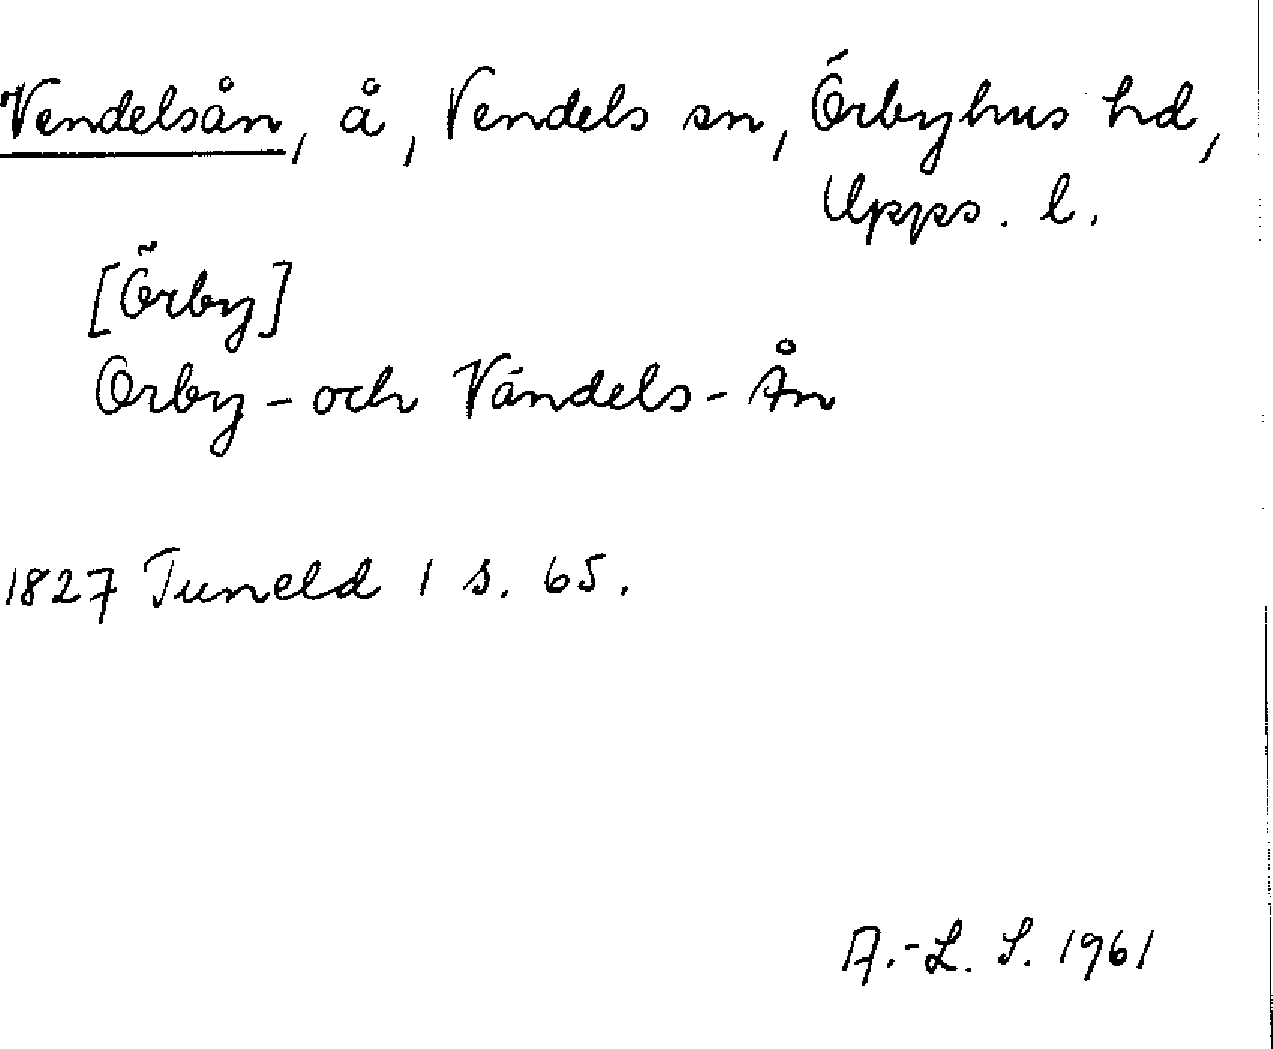 Vendelsån, å, Vendels sn, Örbyhus hd,
Upps. l.
[Örby]
Orby - och Vändels - Ån
1827 Tuneld 1 s. 65.
A.-L. S. 1961